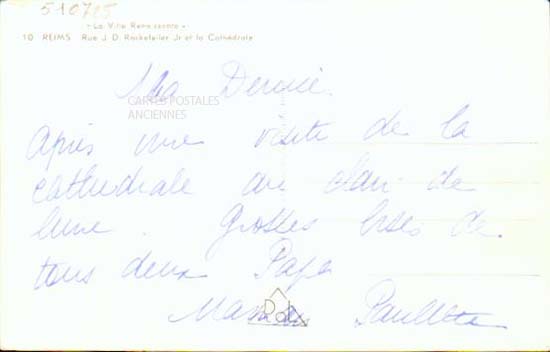 510705
"La Ville Renaissante"
10 REIMS Rue J. D. Rockefeller Jr et la Cathédrale
Ma
CARTES POSTALES
ANCIENNES
Après une visite de la
cathédrale au clair de
lune. Grosses bises de
tous deux Papa
Maman Paulette